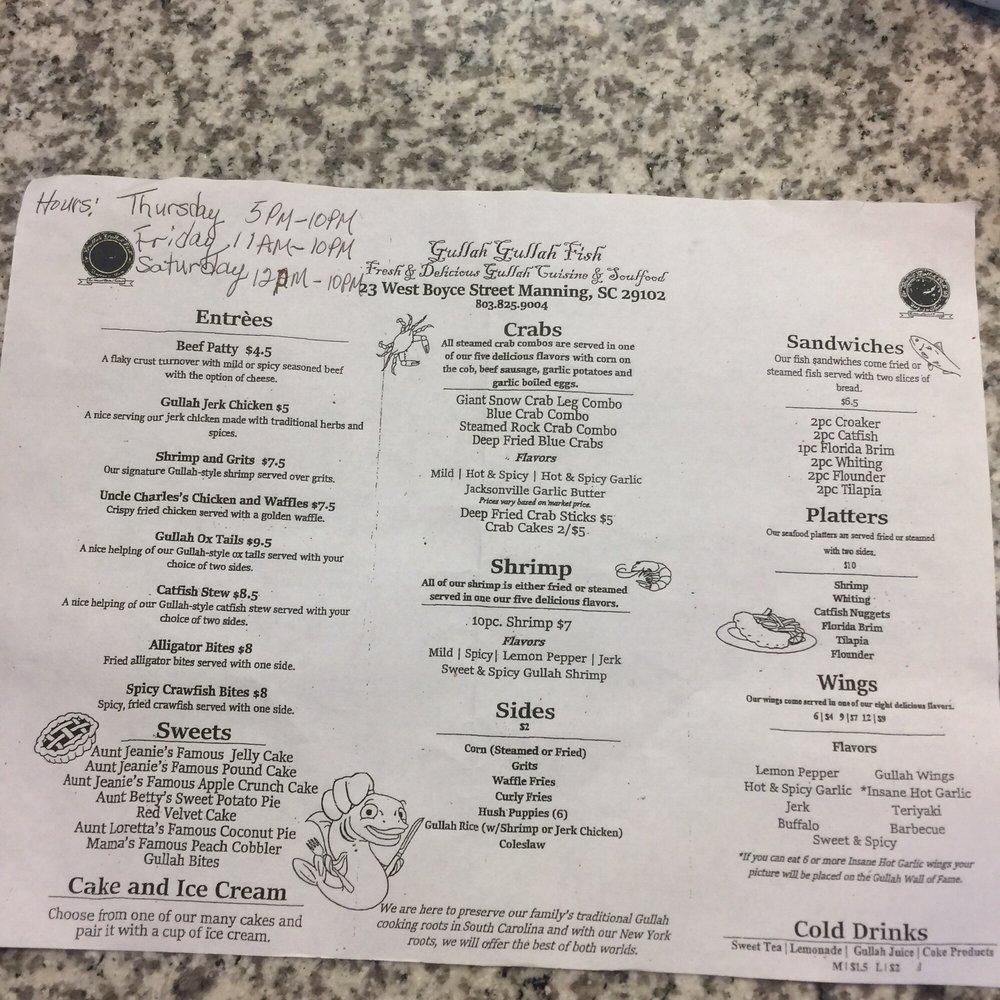 Hours: Thursday 5PM-10PM
Friday 11AM-10PM
Saturday 12PM-10PM
Gullah Gullah Fish
Fresh & Delicious Gullah Cuisine & Soulfood
23 West Boyce Street Manning, SC 29102
803.825.9004
Entrèes
Beef Patty $4.5
A flaky crust turnover with mild or spicy seasoned beef
with the option of cheese.
Gullah Jerk Chicken $5
A nice serving our jerk chicken made with traditional herbs and
spices.
Shrimp and Grits $7.5
Our signature Gullah-style shrimp served over grits.
Uncle Charles's Chicken and Waffles $7.5
Crispy fried chicken served with a golden waffle.
Gullah Ox Tails $9.5
A nice helping of our Gullah-style ox tails served with your
choice of two sides.
Catfish Stew $8.5
A nice helping of our Gullah-style catfish stew served with your
choice of two sides.
Alligator Bites $8
Fried alligator bites served with one side.
Spicy Crawfish Bites $8
Spicy, fried crawfish served with one side.
Sweets
Aunt Jeanie's Famous Jelly Cake
Aunt Jeanie's Famous Pound Cake
Aunt Jeanie's Famous Apple Crunch Cake
Aunt Betty's Sweet Potato Pie
Red Velvet Cake
Aunt Loretta's Famous Coconut Pie
Mama's Famous Peach Cobbler
Gullah Bites
Cake and Ice Cream
Choose from one of our many cakes and
pair it with a cup of ice cream.
Crabs
All steamed crab combos are served in one
of our five delicious flavors with corn on
the cob, beef sausage, garlic potatoes and
garlic boiled eggs.
Giant Snow Crab Leg Combo
Blue Crab Combo
Steamed Rock Crab Combo
Deep Fried Blue Crabs
Flavors
Mild | Hot & Spicy | Hot & Spicy Garlic
Jacksonville Garlic Butter
Prices vary based on market price.
Deep Fried Crab Sticks $5
Crab Cakes 2/$5
Shrimp
All of our shrimp is either fried or steamed
served in one our five delicious flavors.
10pc. Shrimp $7
Flavors
Mild | Spicy| Lemon Pepper | Jerk
Sweet & Spicy Gullah Shrimp
Sides
$2
Corn (Steamed or Fried)
Grits
Waffle Fries
Curly Fries
Hush Puppies (6)
Gullah Rice (w/Shrimp or Jerk Chicken)
Coleslaw
We are here to preserve our family's traditional Gullah
cooking roots in South Carolina and with our New York
roots, we will offer the best of both worlds.
Sandwiches
Our fish sandwiches come fried or
steamed fish served with two slices of
bread.
$6.5
2pc Croaker
2pc Catfish
1pc Florida Brim
2pc Whiting
2pc Flounder
2pc Tilapia
Platters
Our seafood platters are served fried or steamed
with two sides.
$10
Shrimp
Whiting
Catfish Nuggets
Florida Brim
Tilapia
Flounder
Wings
Our wings come served in one of our eight delicious flavors.
6|$4 9|$7 12|$9
Flavors
Lemon Pepper Gullah Wings
Hot & Spicy Garlic *Insane Hot Garlic
Jerk Teriyaki
Buffalo Barbecue
Sweet & Spicy
*If you can eat 6 or more Insane Hot Garlic wings your
picture will be placed on the Gullah Wall of Fame.
Cold Drinks
Sweet Tea | Lemonade | Gullah Juice | Coke Products
M|$1.5 L|$2